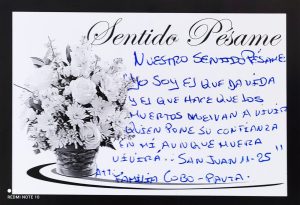 Sentido Pésame
NUESTRO SENTIDO PESAME:
"YO SOY EL QUE DA VIDA
Y EL QUE HACE QUE LOS
MUERTOS VUELVAN A VIVIR
QUIEN PONE SU CONFIANZA
EN MÍ, AUNQUE MUERA
VIVIRA... SAN JUAN 11-25"
ATT: FAMILIA COBO-PAUTA.
REDMI NOTE 10